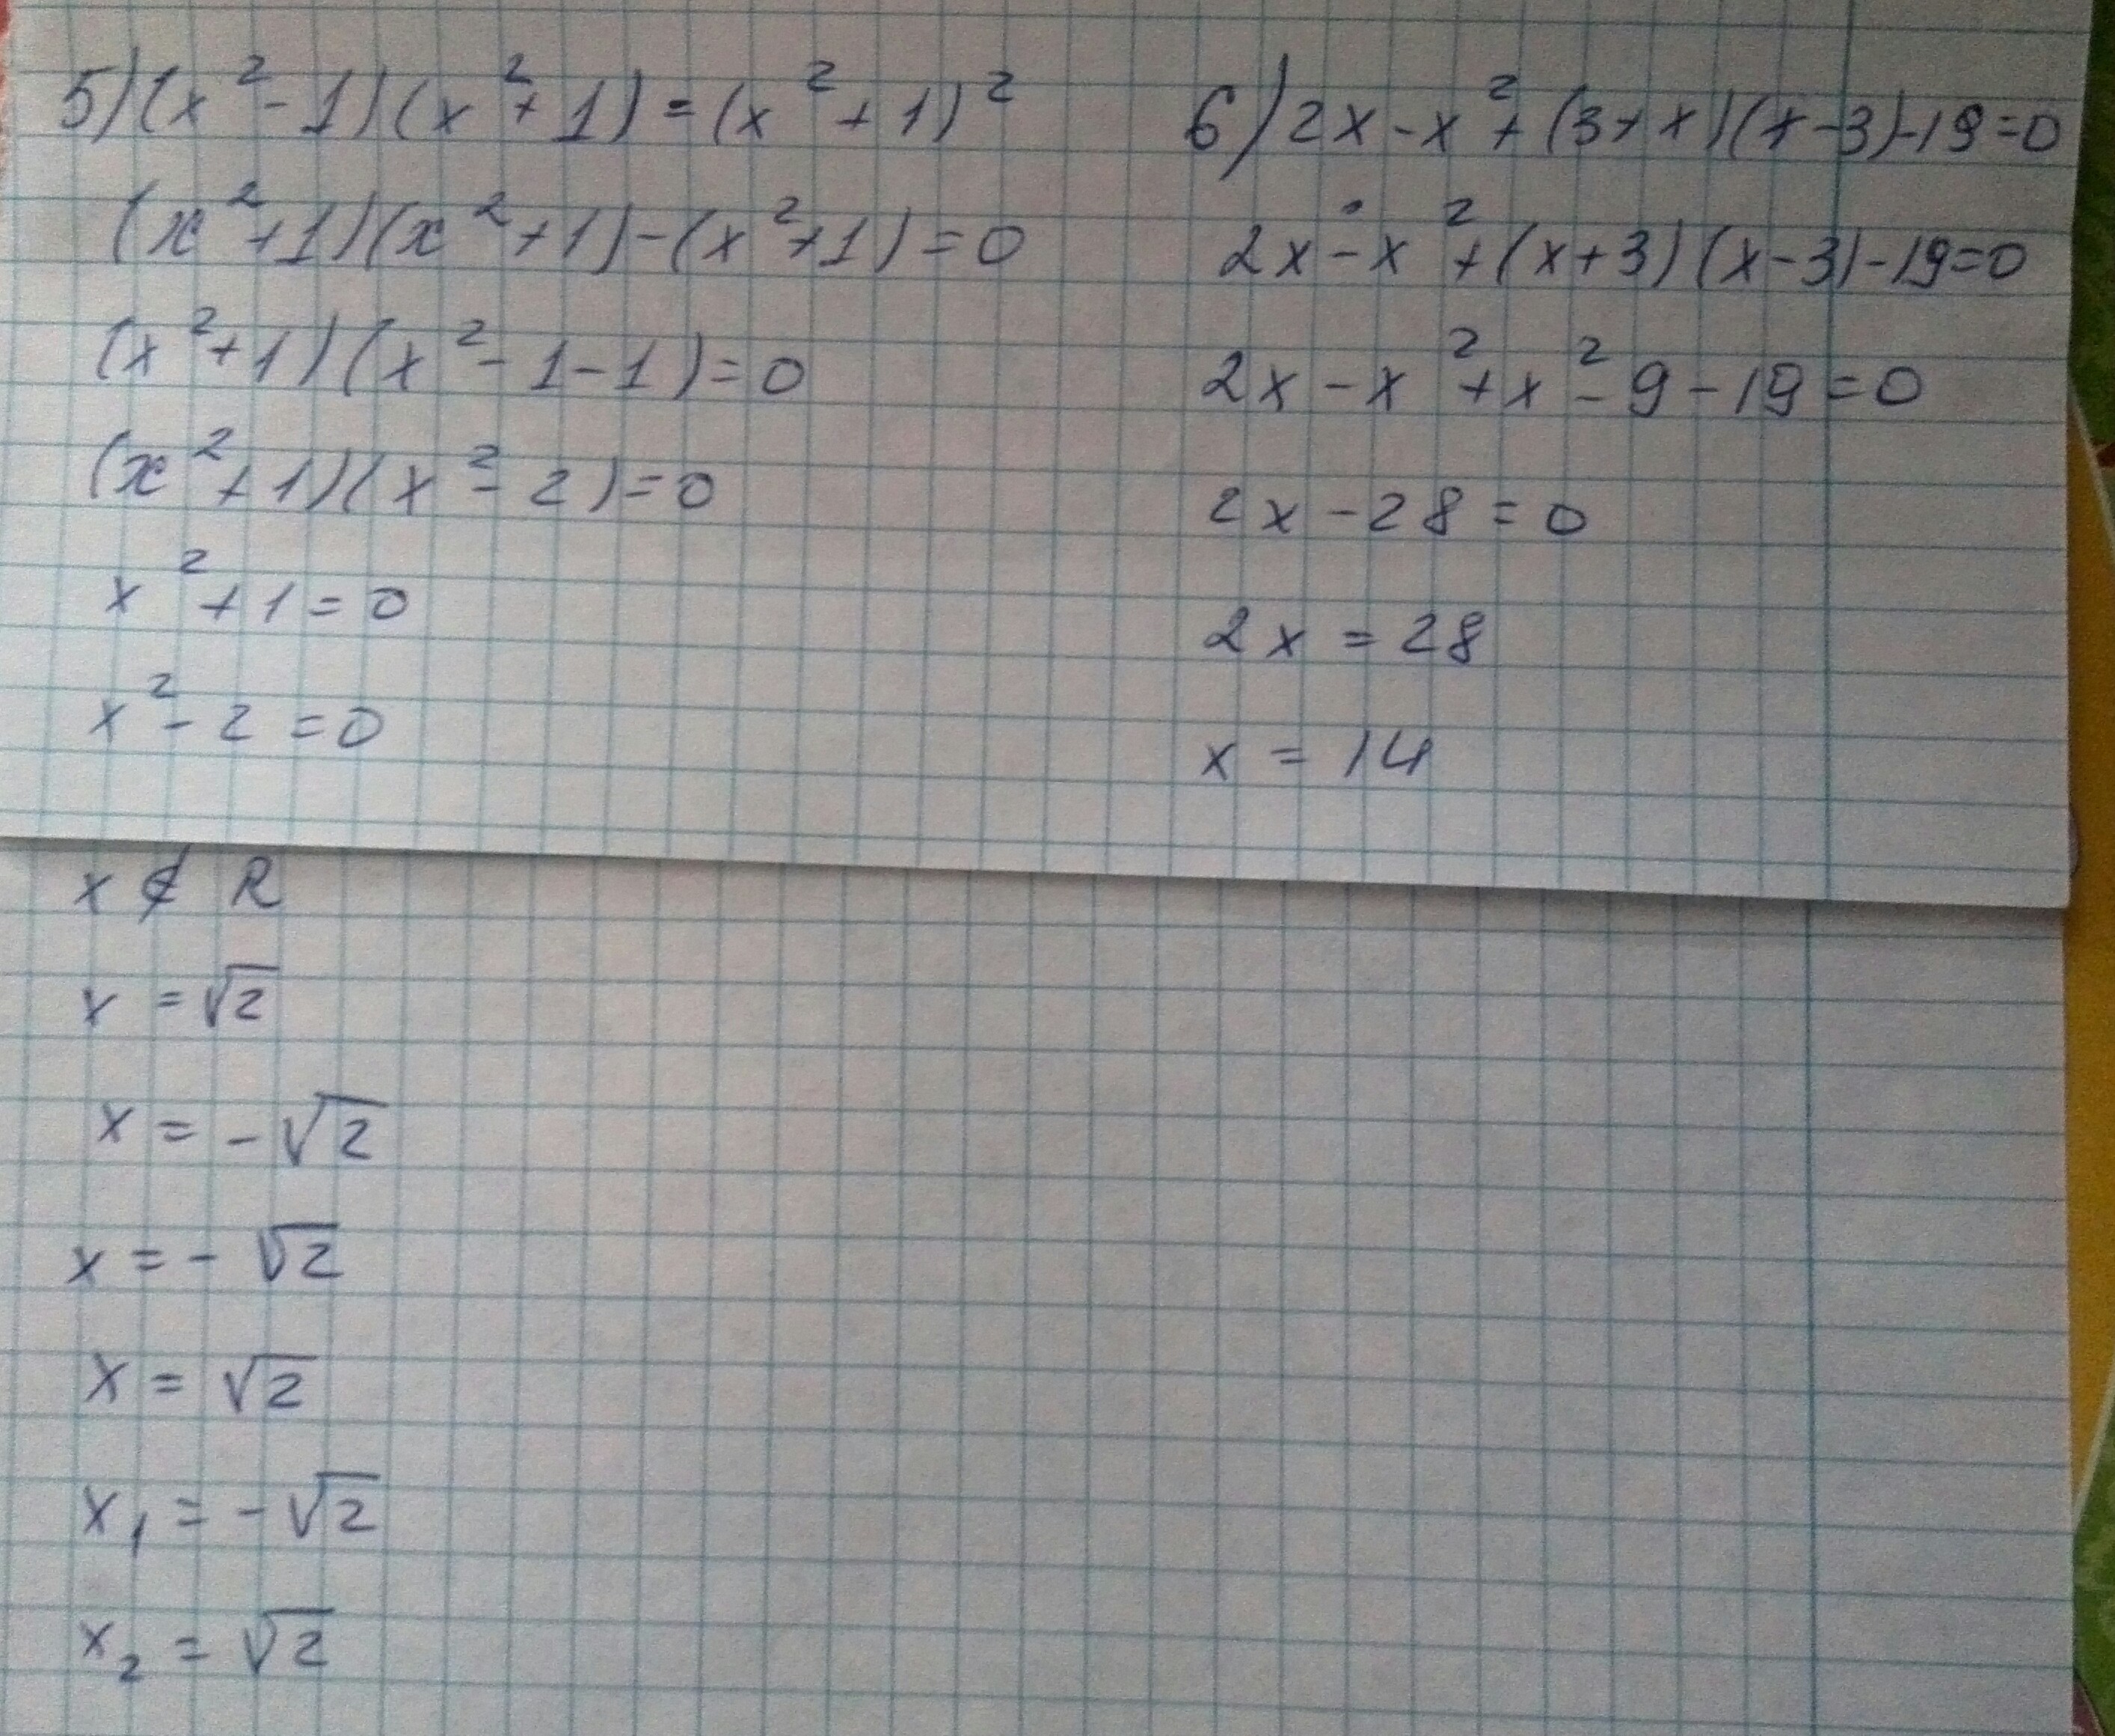 5) (x²-1)(x²+1)=(x²+1)²
(x²+1)(x²+1)-(x²+1)=0
(x²+1)(x²-1-1)=0
(x²+1)(x²-2)=0
x²+1=0
x²-2=0
x ∉ R
x=√2
x=-√2
x=-√2
x=√2
x₁=-√2
x₂=√2
6) 2x-x²+(3+x)(x-3)-19=0
2x-x²+(x+3)(x-3)-19=0
2x-x²+x²-9-19=0
2x-28=0
2x=28
x=14